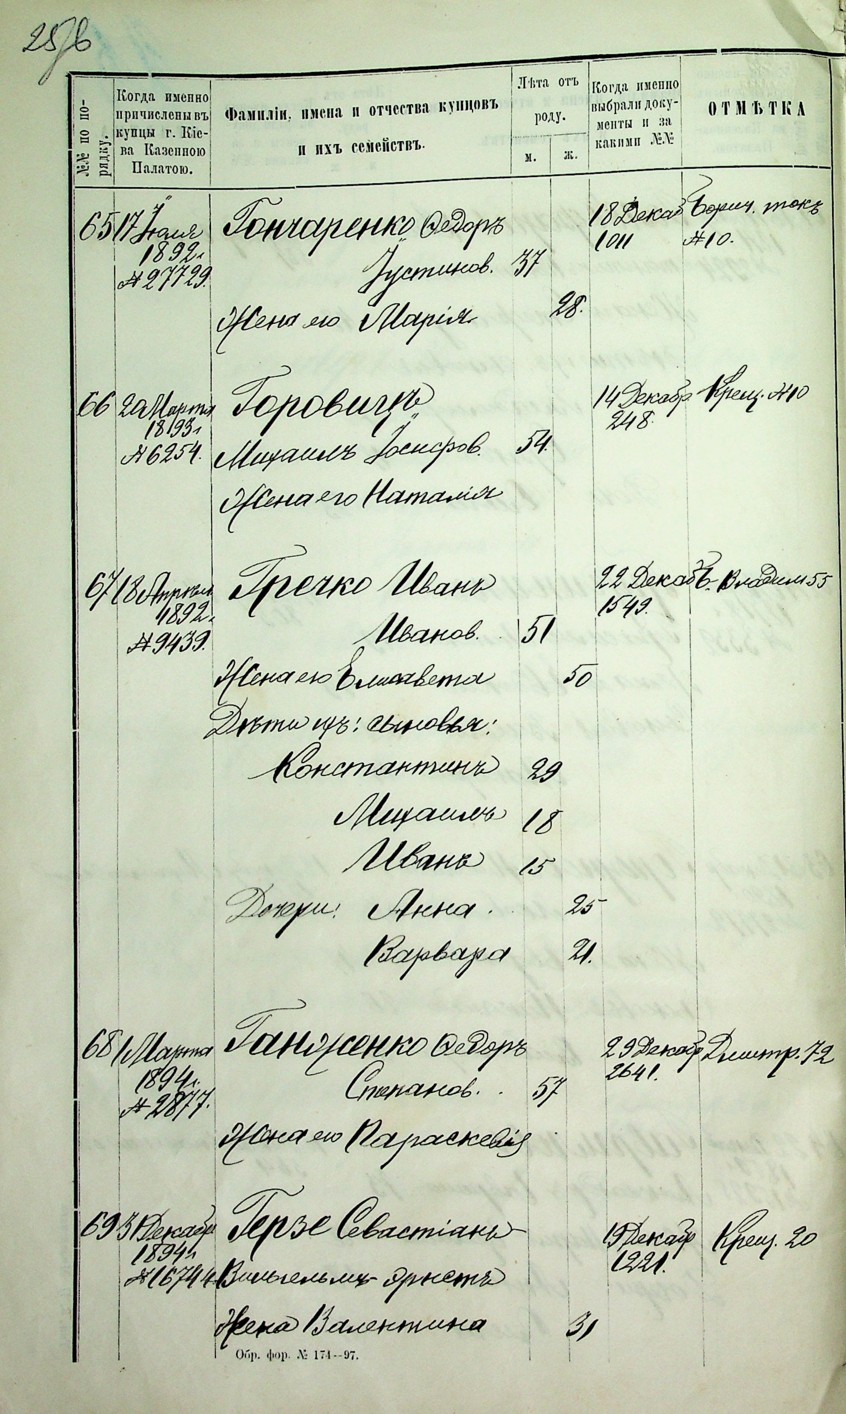 25/6
№№ по по-
рядку.
Когда именно
причислены въ
купцы г. Кіе-
ва Казенною
Палатою.
Фамиліи, имена и отчества купцовъ
и ихъ семействъ.
Лѣта отъ
роду.
м. ж.
Когда именно
выбрали доку-
менты и за
какими №№
ОТМѢТКА
65 17 Іюля Гончаренко Ѳедоръ 18 Декаб Борич. токъ
1892 г. Іустинов. 37 1011 №10.
№27729
Жена его Марія 28.
66 20 Марта Горовицъ 14 Декабр Крещ. №10
1893 г. 248.
№6254. Михаилъ Іосифов. 54.
Жена его Наталія
67 18 Апрѣля Гречко Иванъ 22 Декаб Б. Владим 55
1892 г. Иванов. 51 1549.
№9439.
Жена его Елисавета 50
Дѣти ихъ: сыновья:
Константинъ 29
Михаилъ 18
Иванъ 15
Дочери: Анна. 25
Варвара 21.
68 1 Марта Ганженко Ѳедоръ 29 Декабр Дмитр. 72
1894 г. Степанов. 57 2641.
№2877.
Жена его Параскевія
69 31 Декабр Герзе Севастіанъ 19 Декабр Крещ. 20
1894 г. 1221.
№16744 Вильгельмъ-Эрнестъ
Жена Валентина 31
Обр. фор. № 174—97.